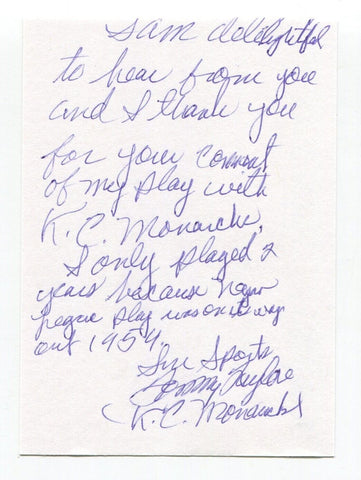 Sam delightful
to hear from you
and I thank you
for your comment
of my play with
K.C. Monarchs,
I only played 2
years because Negro
league play was on its way
out 1959.
Sports
Tommy Taylor
K.C. Monarchs